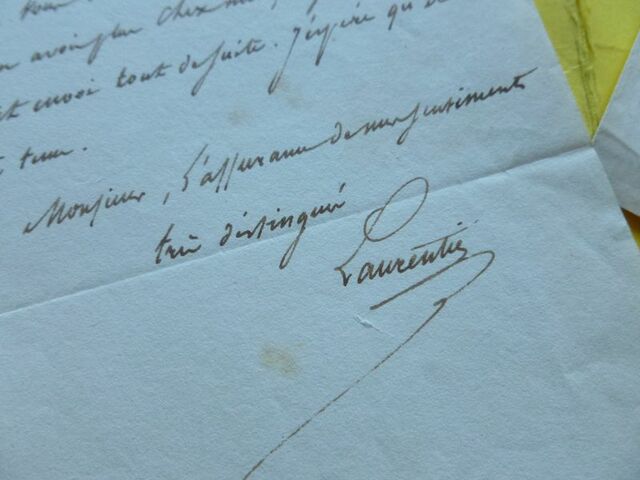 pour
avoir plus chez moi,
envoi tout de suite. J'espère qu'il
Monsieur, l'assurance de mes sentiments
très distingués
Laurentie